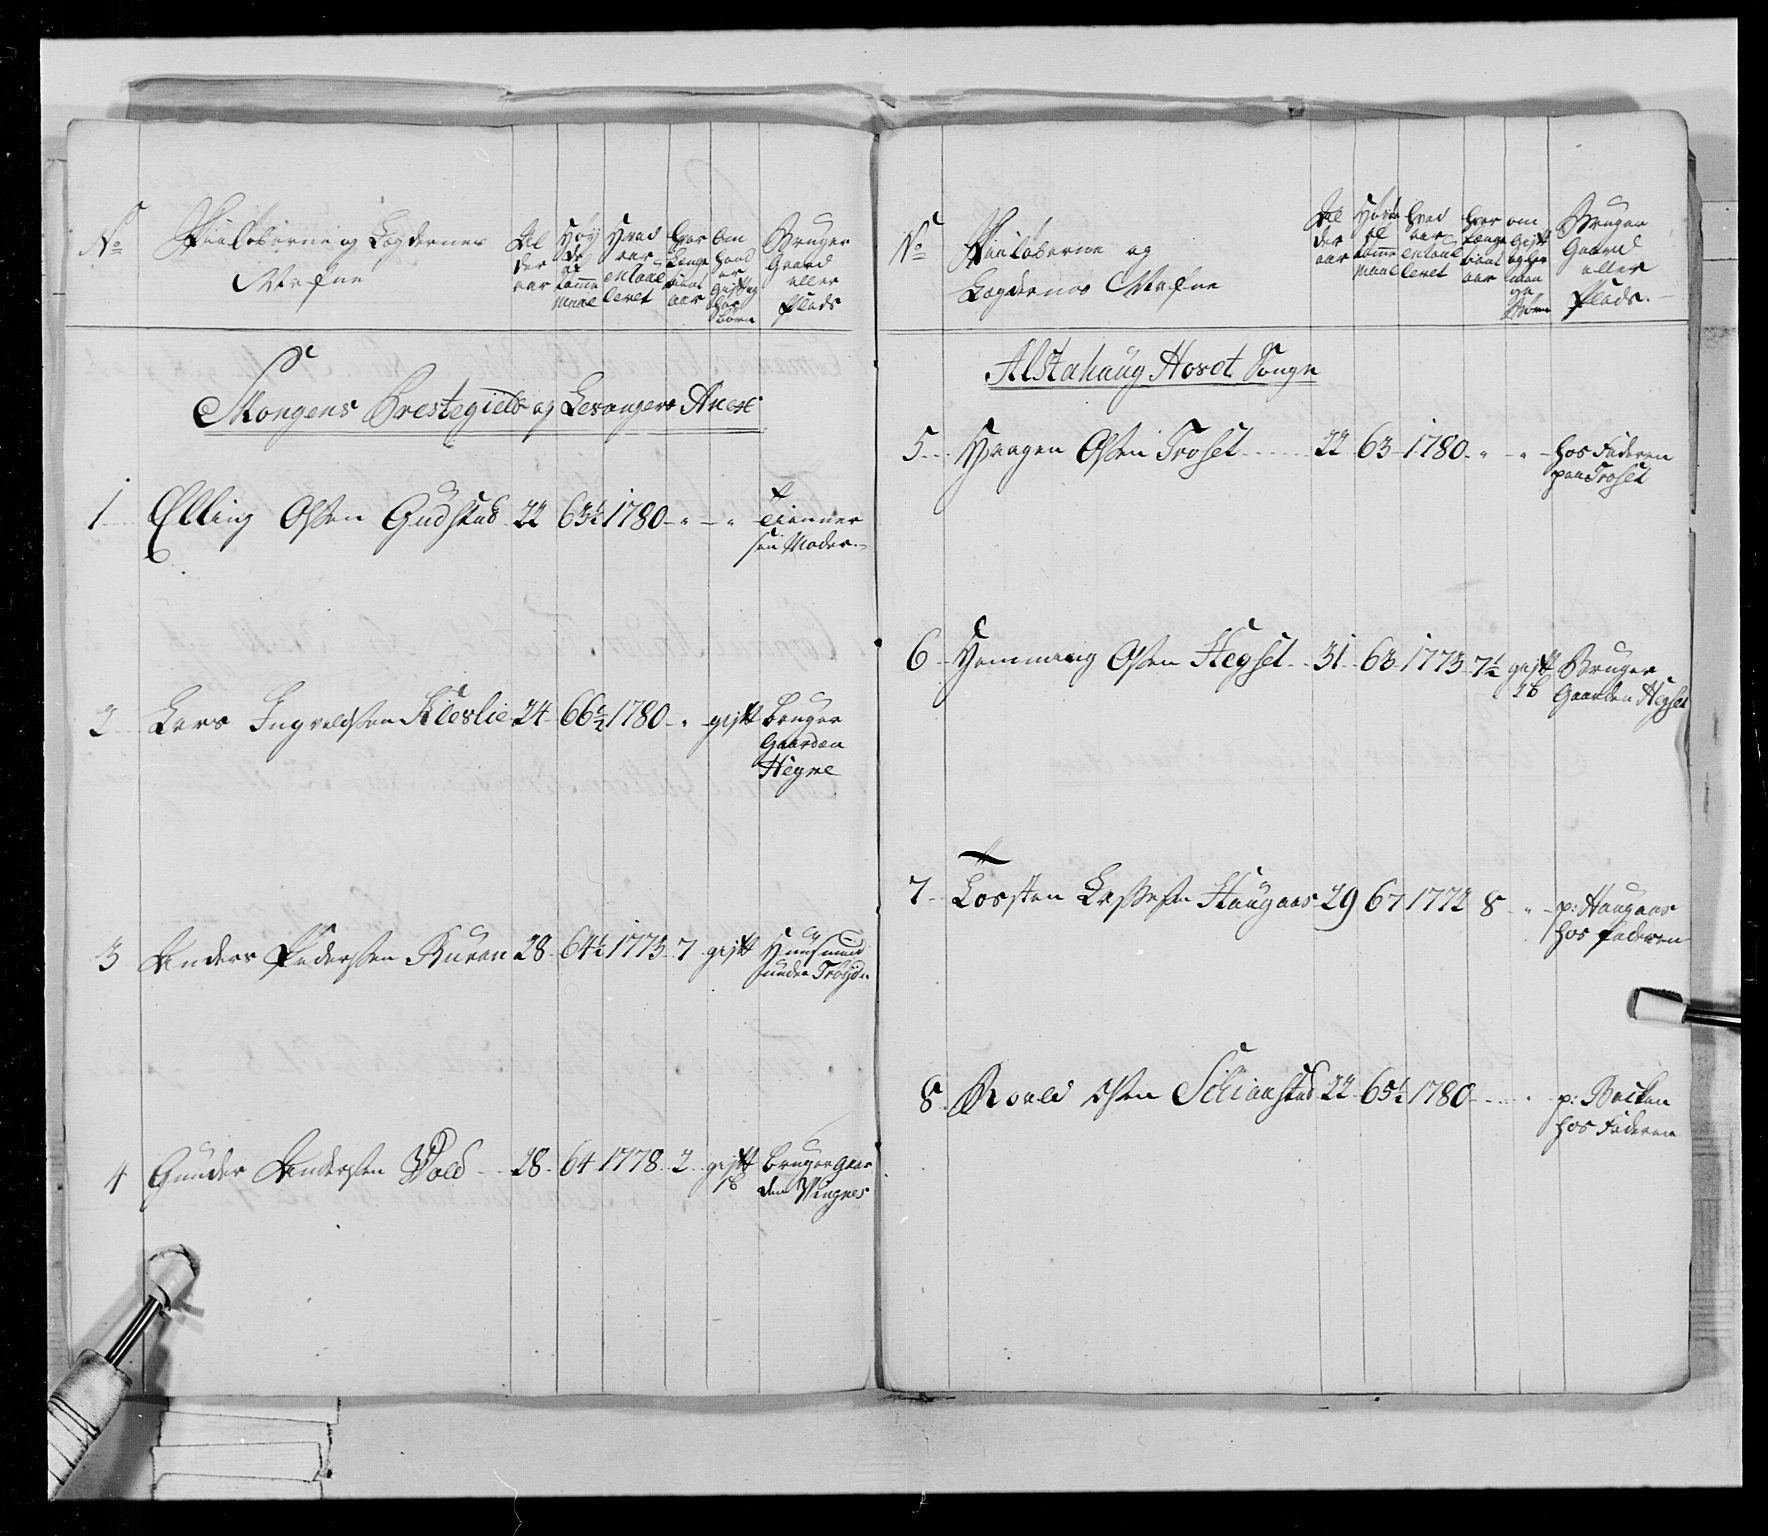 No
Skiiløberne og Lægdernes
Nafne
Al
der
aar
Høy
de
af
tomme
maal
Hvad
aar
enroul
leret
hvor
længe
tiänt
aar
Om
hand
er
gift og
har
børn
Bruger
Gaard
eller
Plads
Skongens Prestegield og Levangers Anext
1 Elling Olsen Gudstad 22 63½ 1780 " " Tienner
sin Moder.
2 Lars Ingvaldsen Kleslie 24 66½ 1780 " gift bruger
Gaarden
Hegne
3 Anders Pedersen Buran 28 64½ 1773 7 gift Huusmand
under
4 Gunder Andersen Vold 28 64 1778 2 gift bruger Gaar
1 b den Vingnes
No
Skiiløberne og
Lægdernes Nafne
Al
der
aar
Høyde
al
tomme
maal
hvad
aar
enroul
leret
hvor
længe
tiänt
aar
om
gift
og har
man
ge
Børn
Bruger
Gaard
eller
Plads.
Alstahaug Hovet Sougn
5 Haagen Olsen Troset 22 63 1780 " " hos Faderen
paa Troset
6 Hemming Olsen Hegset 31 63 1773 7½ gift Bruger
1 b Gaarden Hegset
7 Torsten Haugaas 29 67 1772 8 " p: Haugaas
hos faderen
8 Roald Olsen 22 65½ 1780 " p: Backen
hos Faderen